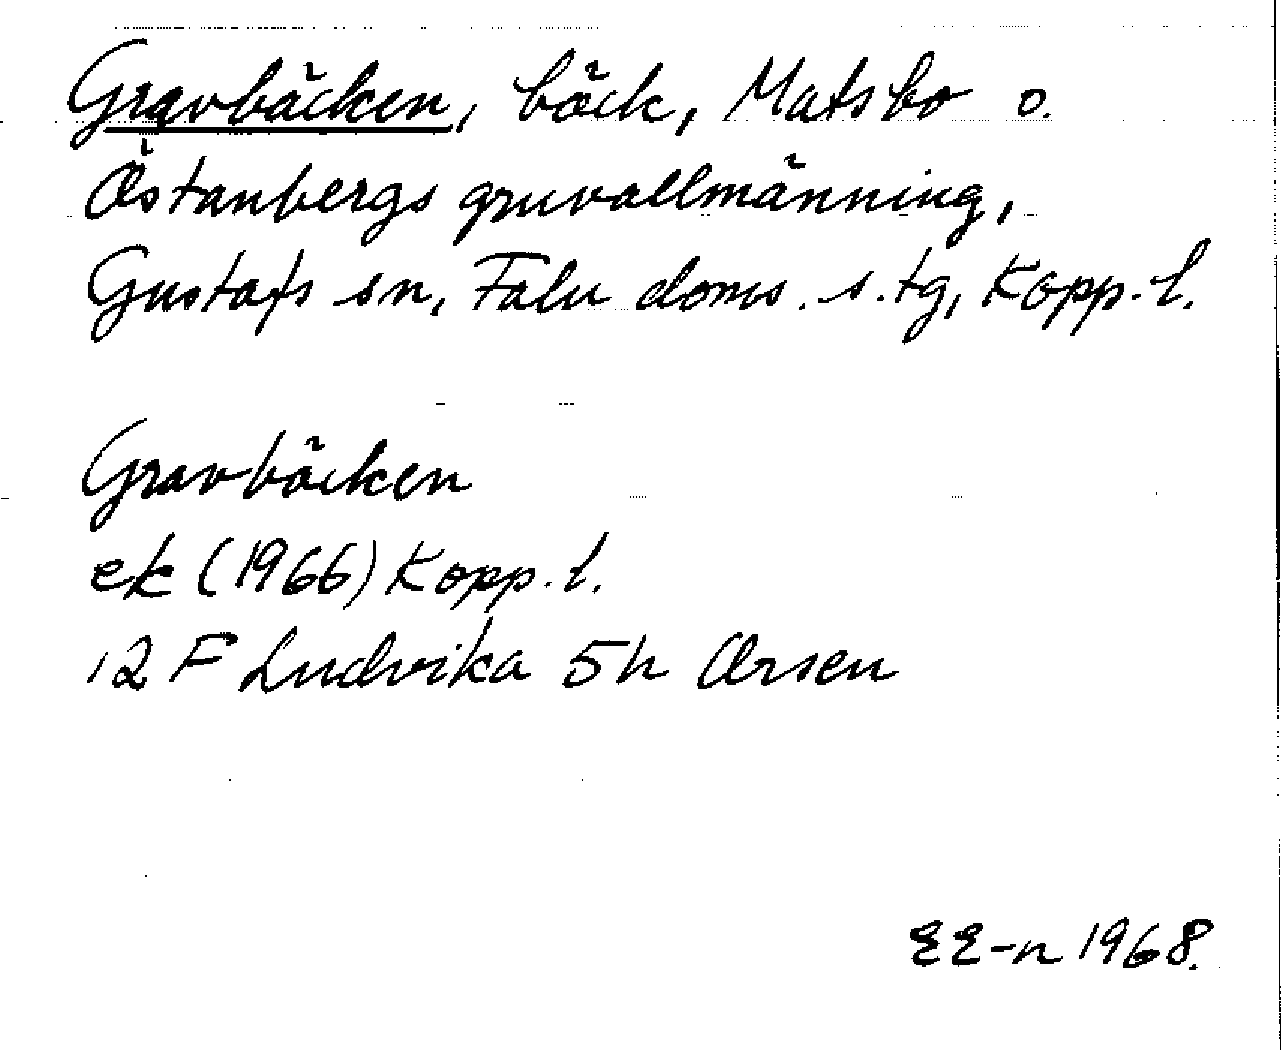 Gravbäcken, bäck, Matsbo o.
Östanbergs gruvallmänning,
Gustafs sn, Falu doms. s. tg, Kopp. l.
Gravbäcken
ek (1966) Kopp. l.
12 F Ludvika 5h Orsen
EE-n 1968.